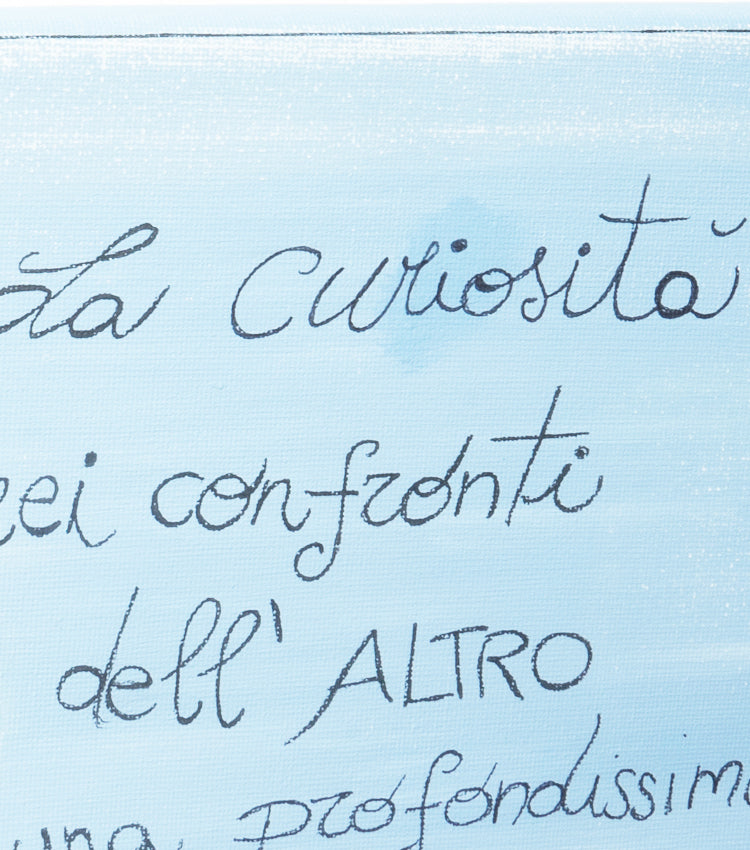 La curiosità
nei confronti
dell' ALTRO
una profondissima